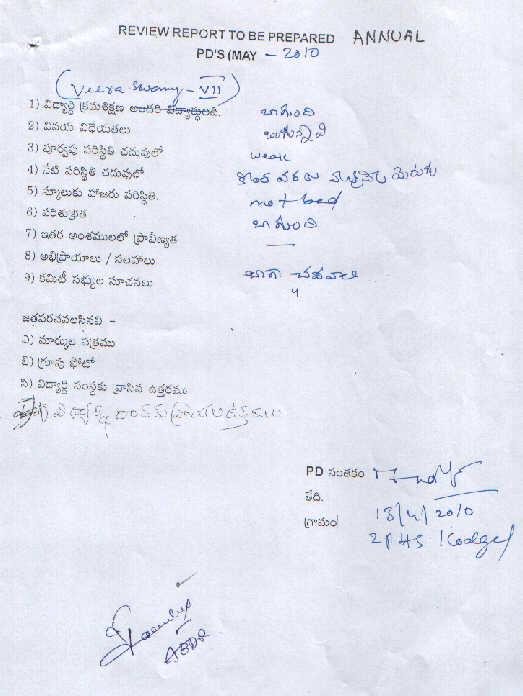 REVIEW REPORT TO BE PREPARED ANNUAL
PD'S (MAY - 2010
(Veera Swamy - VII)
1) విద్యార్థి క్రమశిక్షణ బాగుంది
2) వినయ విధేయతలు బాగున్నవి
3) పూర్వపు పరిస్థితి చదువులో weak
4) నేటి పరిస్థితి చదువులో
5) స్కూలుకు హాజరు పరిస్థితి. not bad
6) పరిశుభ్రత బాగుంది
7) ఇతర అంశములలో ప్రావీణ్యత —
8) అభిప్రాయాలు / సలహాలు
9) కమిటీ సభ్యుల సూచనలు "
జతపరచవలసినవి -
ఎ) మార్కుల పత్రము
బి) గ్రూపు ఫోటో
సి) విద్యార్థి సంస్థకు వ్రాసిన ఉత్తరము
PD సంతకం
తేది. 18/4/2010
గ్రామం ZPHS Kodgal